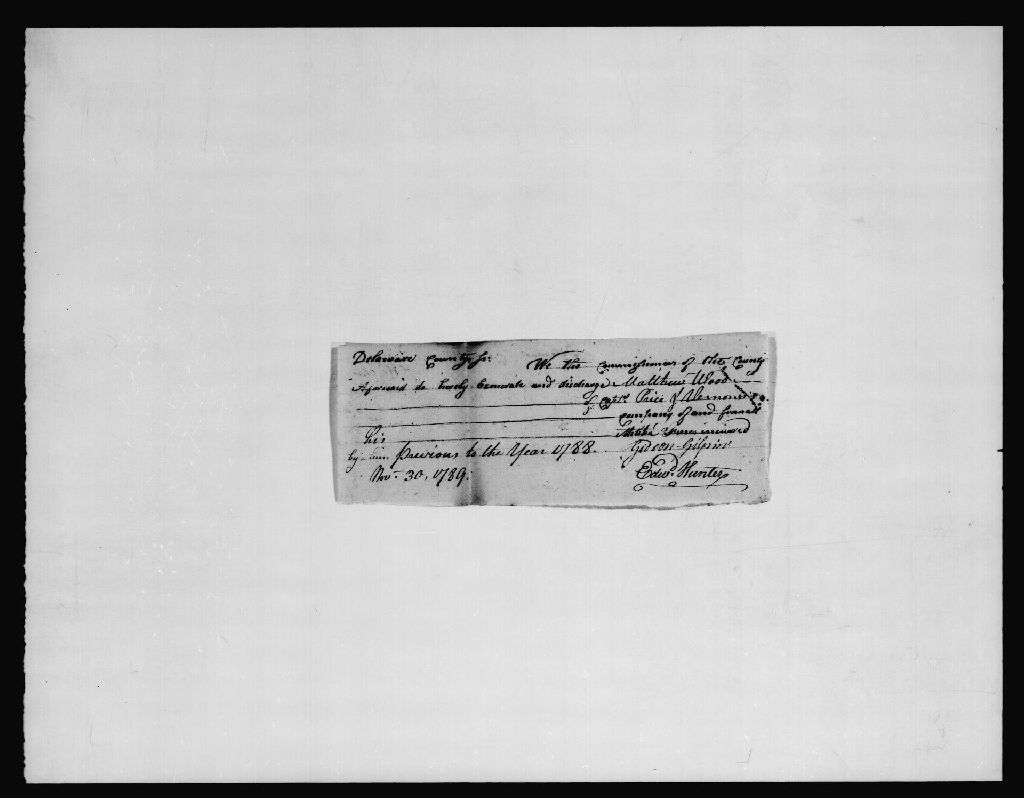 Delaware County Ss. We the Commissioners of the County
Aforesaid do hereby Exonerate and discharge Matthew Wood
of Capt. Price's
company of and from all
Militia fines incurred
his
by him previous to the Year 1788. Gideon Gilpin
Nov. 30, 1789. Edwd. Hunter